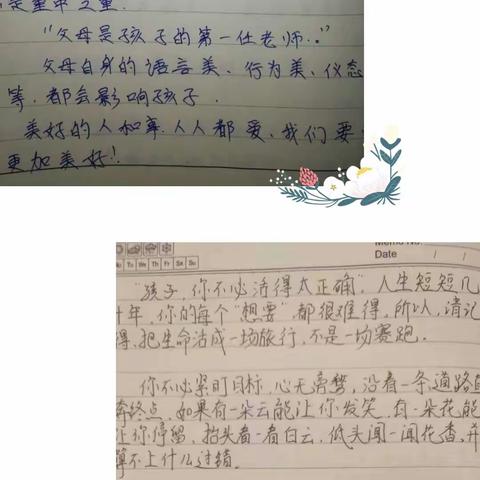 是重中之重.
"父母是孩子的第一任老师.."
父母自身的语言美、行为美、仪态
等.都会影响孩子.
美好的人和事.人人都爱.我们要
更加美好!
Memo No.
Date / /
Mo Tu We Th Fr Sa Su
"孩子,你不必活得太正确",人生短短几
十年,你的每个"想要"都很难得,所以,请记
得,把生命活成一场旅行,不是一场赛跑.
你不必紧盯目标,心无旁骛,沿着一条道路直
奔终点,如果有一朵云能让你发笑,有一朵花能
让你停留,抬头看一看白云,低头闻一闻花香,并
算不上什么过错.